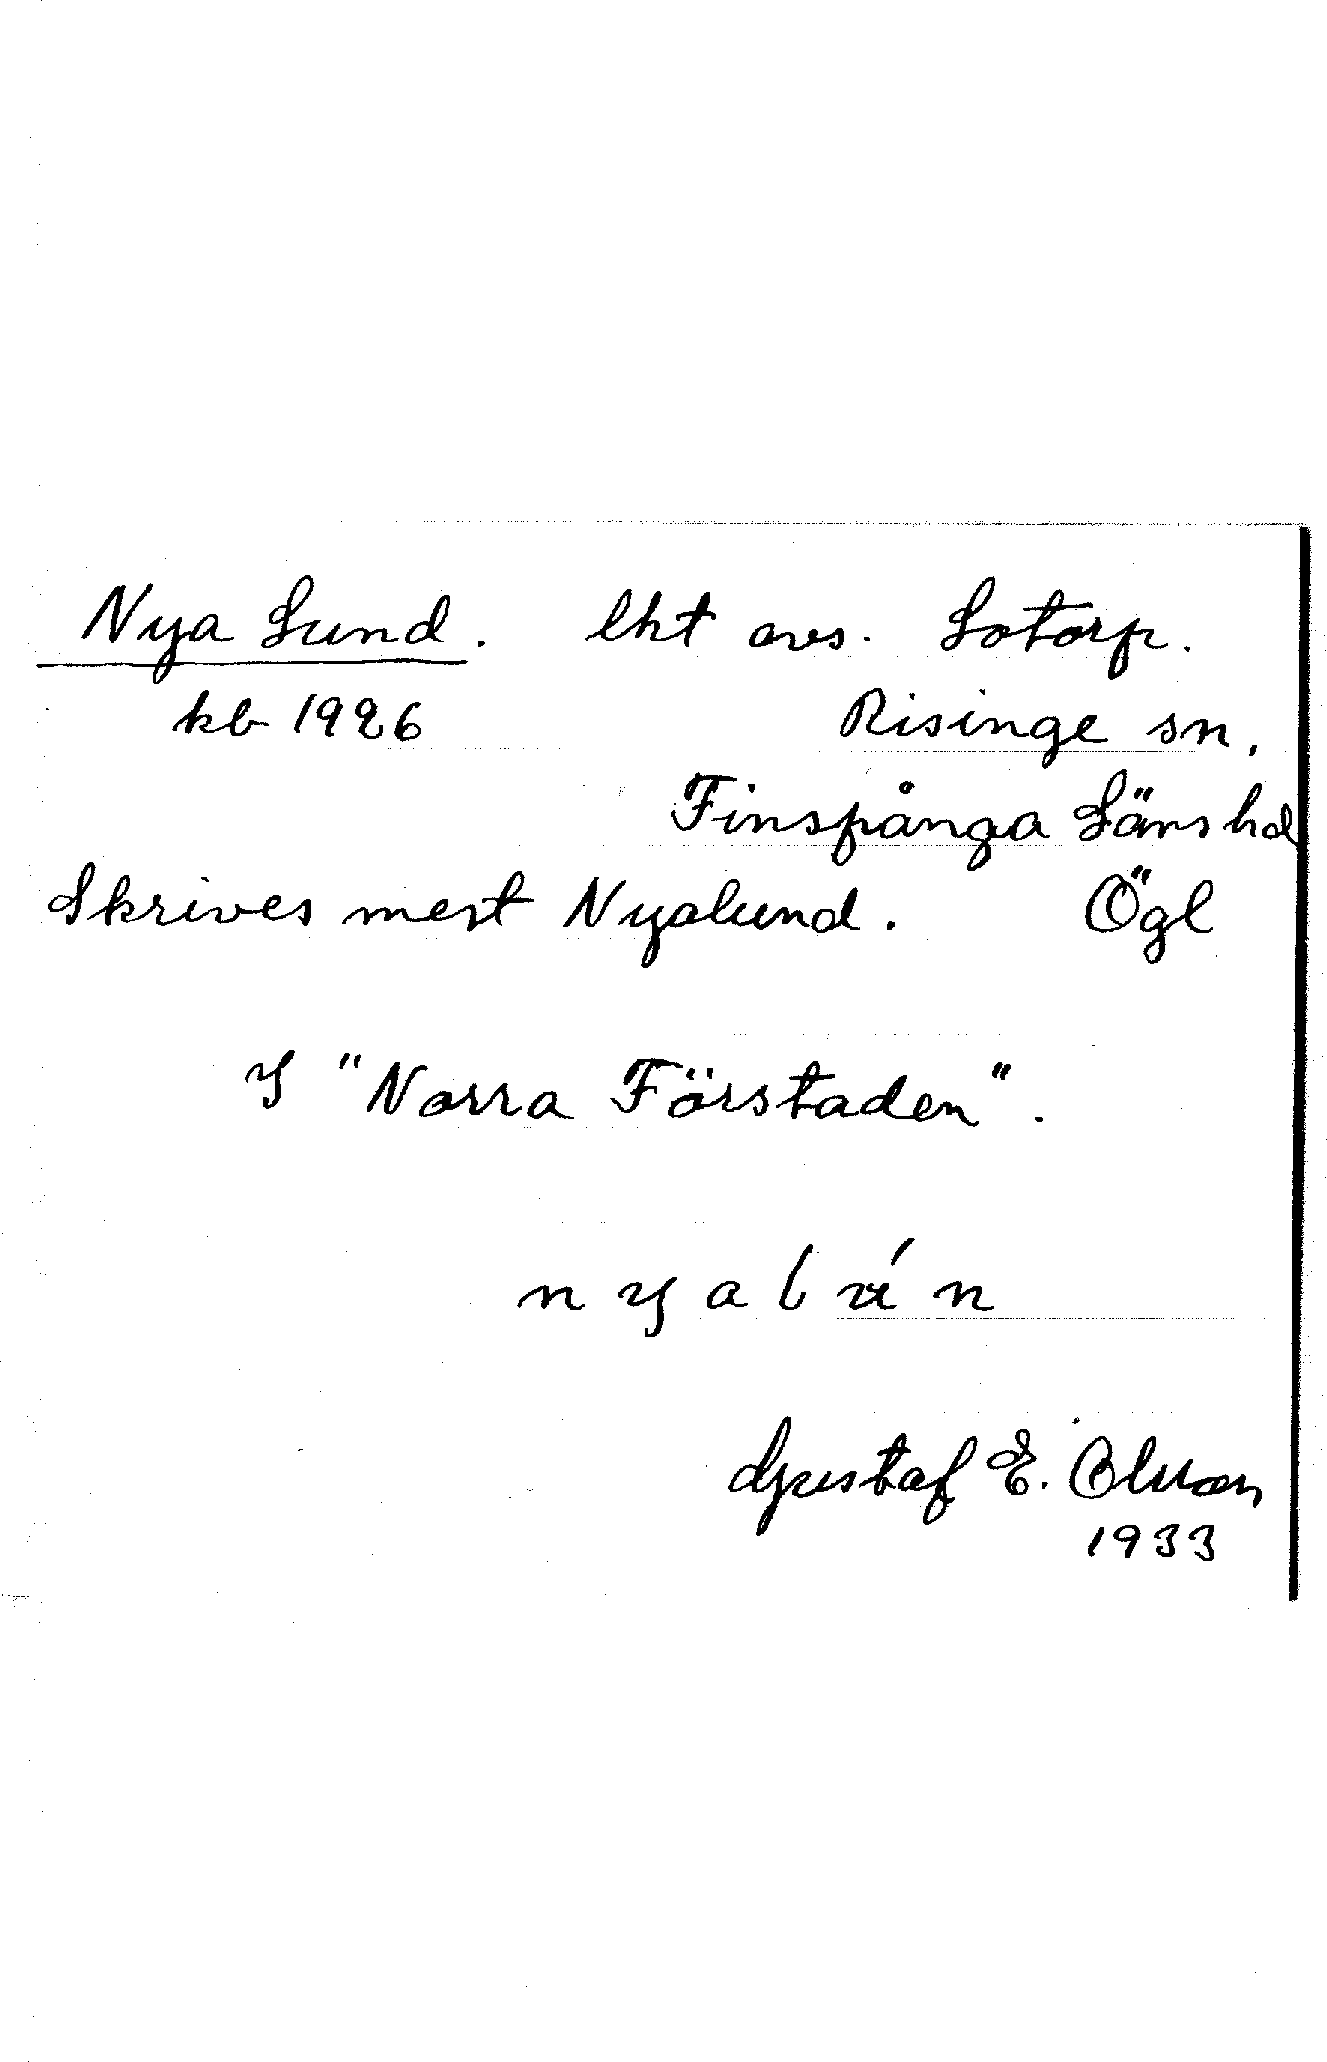 Nya Lund. lht avs. Lotorp.
kb 1926 Risinge sn.
Finspånga Läns hd
Skrives mest Nyalund. Ögl
I "Norra Förstaden".
n y a l ú n
Gustaf E. Olsson
1933